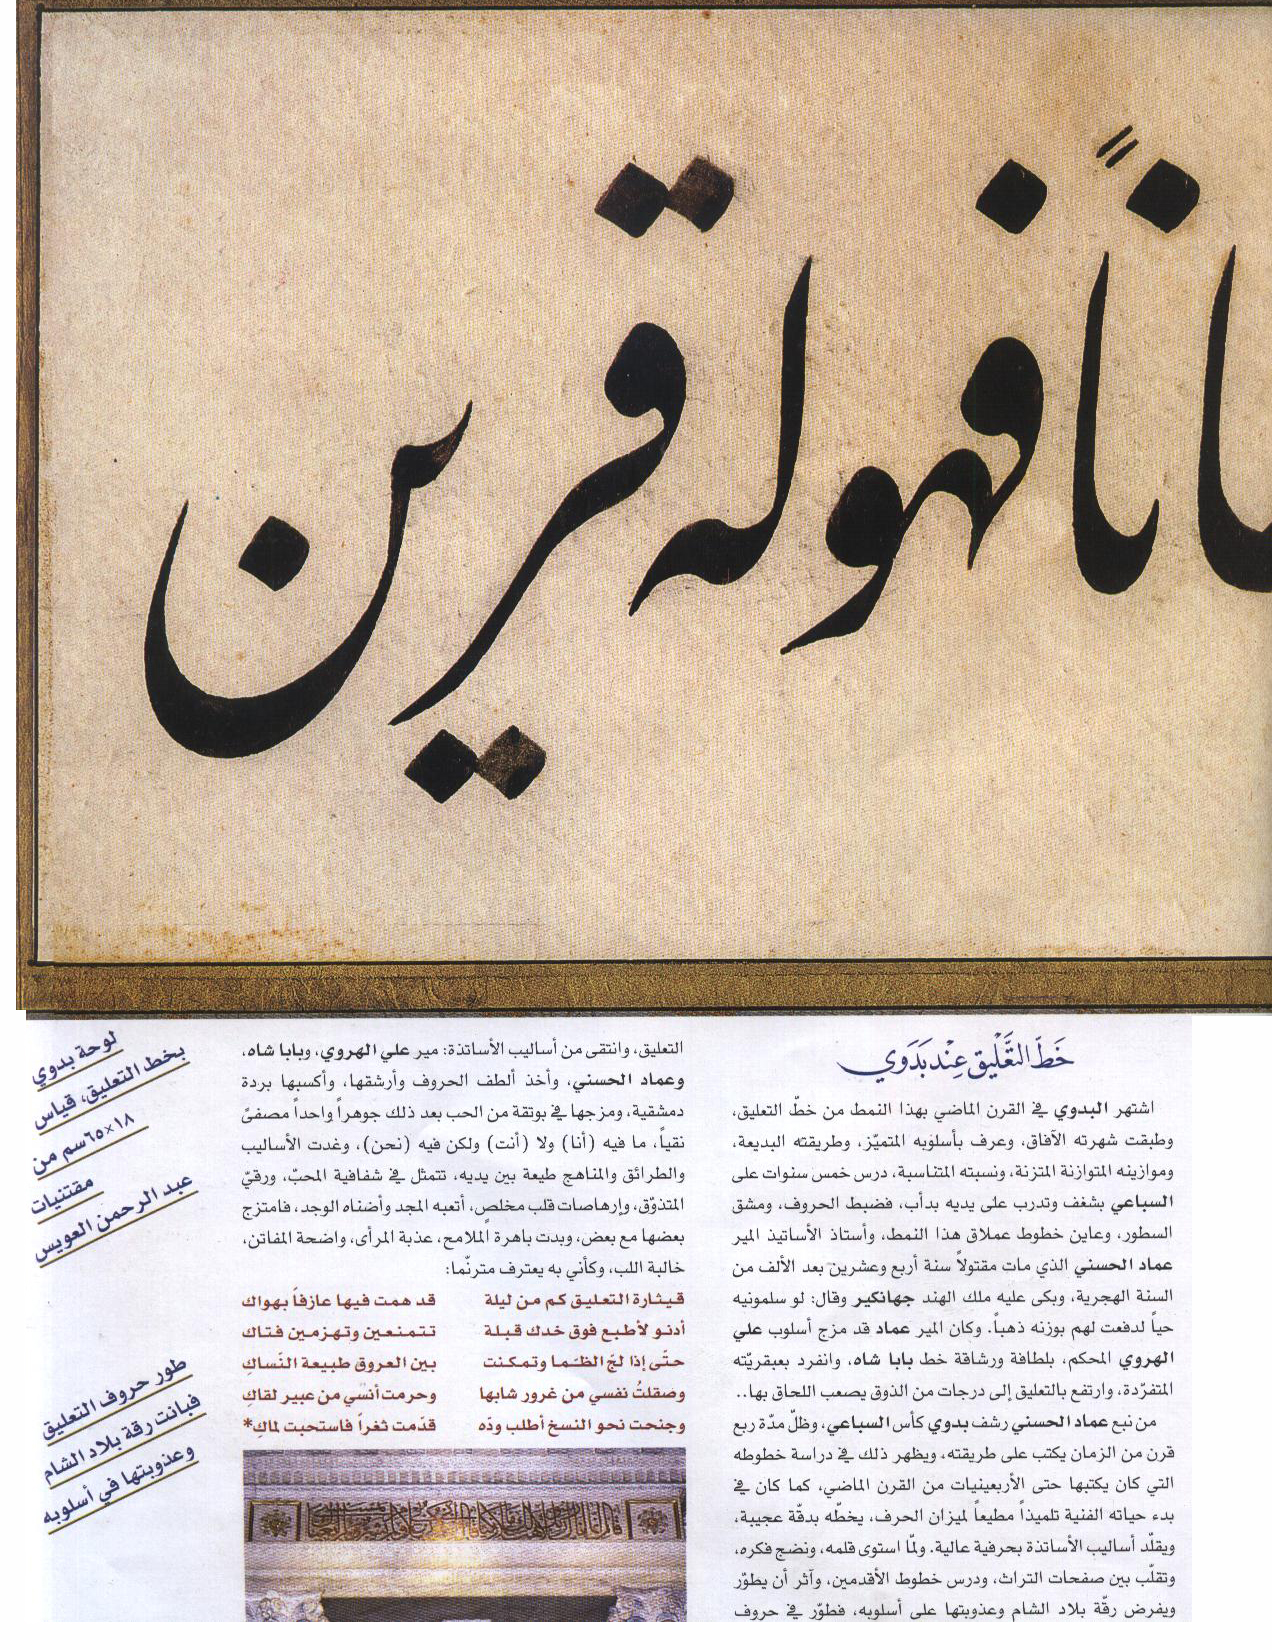 ـاناً فهو له قرين
خَطّ التَّعْليق عِنْد بَدَوي
اشتهر البدوي في القرن الماضي بهذا النمط من خطّ التعليق،
وطبقت شهرته الآفاق، وعرف بأسلوبه المتميّز، وطريقته البديعة،
وموازينه المتوازنة المتزنة، ونسبته المتناسبة، درس خمس سنوات على
السباعي بشغف وتدرب على يديه بدأب، فضبط الحروف، ومشق
السطور، وعاين خطوط عملاق هذا النمط، وأستاذ الأساتيذ المير
عماد الحسني الذي مات مقتولاً سنة أربع وعشرين بعد الألف من
السنة الهجرية، وبكى عليه ملك الهند جهانكير وقال: لو سلمونيه
حياً لدفعت لهم بوزنه ذهباً. وكان المير عماد قد مزج أسلوب علي
الهروي المحكم، بلطافة ورشاقة خط بابا شاه، وانفرد بعبقريّته
المتفرّدة، وارتفع بالتعليق إلى درجات من الذوق يصعب اللحاق بها..
من نبع عماد الحسني رشف بدوي كأس السباعي، وظلّ مدّة ربع
قرن من الزمان يكتب على طريقته، ويظهر ذلك في دراسة خطوطه
التي كان يكتبها حتى الأربعينيات من القرن الماضي، كما كان في
بدء حياته الفنية تلميذاً مطيعاً لميزان الحرف، يخطّه بدقّة عجيبة،
ويقلّد أساليب الأساتذة بحرفية عالية. ولمّا استوى قلمه، ونضج فكره،
وتقلّب بين صفحات التراث، ودرس خطوط الأقدمين، وآثر أن يطوّر
ويفرض رقّة بلاد الشام وعذوبتها على أسلوبه، فطوّر في حروف
التعليق، وانتقى من أساليب الأساتذة: مير علي الهروي، وبابا شاه،
وعماد الحسني، وأخذ ألطف الحروف وأرشقها، وأكسبها بردة
دمشقية، ومزجها في بوتقة من الحب بعد ذلك جوهراً واحداً مصفىً
نقياً، ما فيه (أنا) ولا (أنت) ولكن فيه (نحن)، وغدت الأساليب
والطرائق والمناهج طيعة بين يديه، تتمثل في شفافية المحبّ، ورقيّ
المتذوّق، وإرهاصات قلب مخلصٍ، أتعبه المجد وأضناه الوجد، فامتزج
بعضها مع بعض، وبدت باهرة الملامح، عذبة المرأى، واضحة المفاتن،
خالبة اللب، وكأني به يعترف مترنّما:
قيثارة التعليق كم من ليلة قد همت فيها عازفاً بهواك
أدنو لأطبع فوق خدك قبلة تتمنعين وتهزمين فتاك
حتّى إذا لجّ الظـّما وتمكنت بين العروق طبيعة النّساكِ
وصقلتُ نفسي من غرور شابها وحرمت أنسي من عبير لقاكِ
وجنحت نحو النسخ أطلب وذه قدّمت ثغراً فاستحبت لماكِ*
لوحة بدوي
بخط التعليق، قياس
١٨×٦٥سم من
مقتنيات
عبد الرحمن العويس
طور حروف التعليق
فبانت رقة بلاد الشام
وعذوبتها في أسلوبه